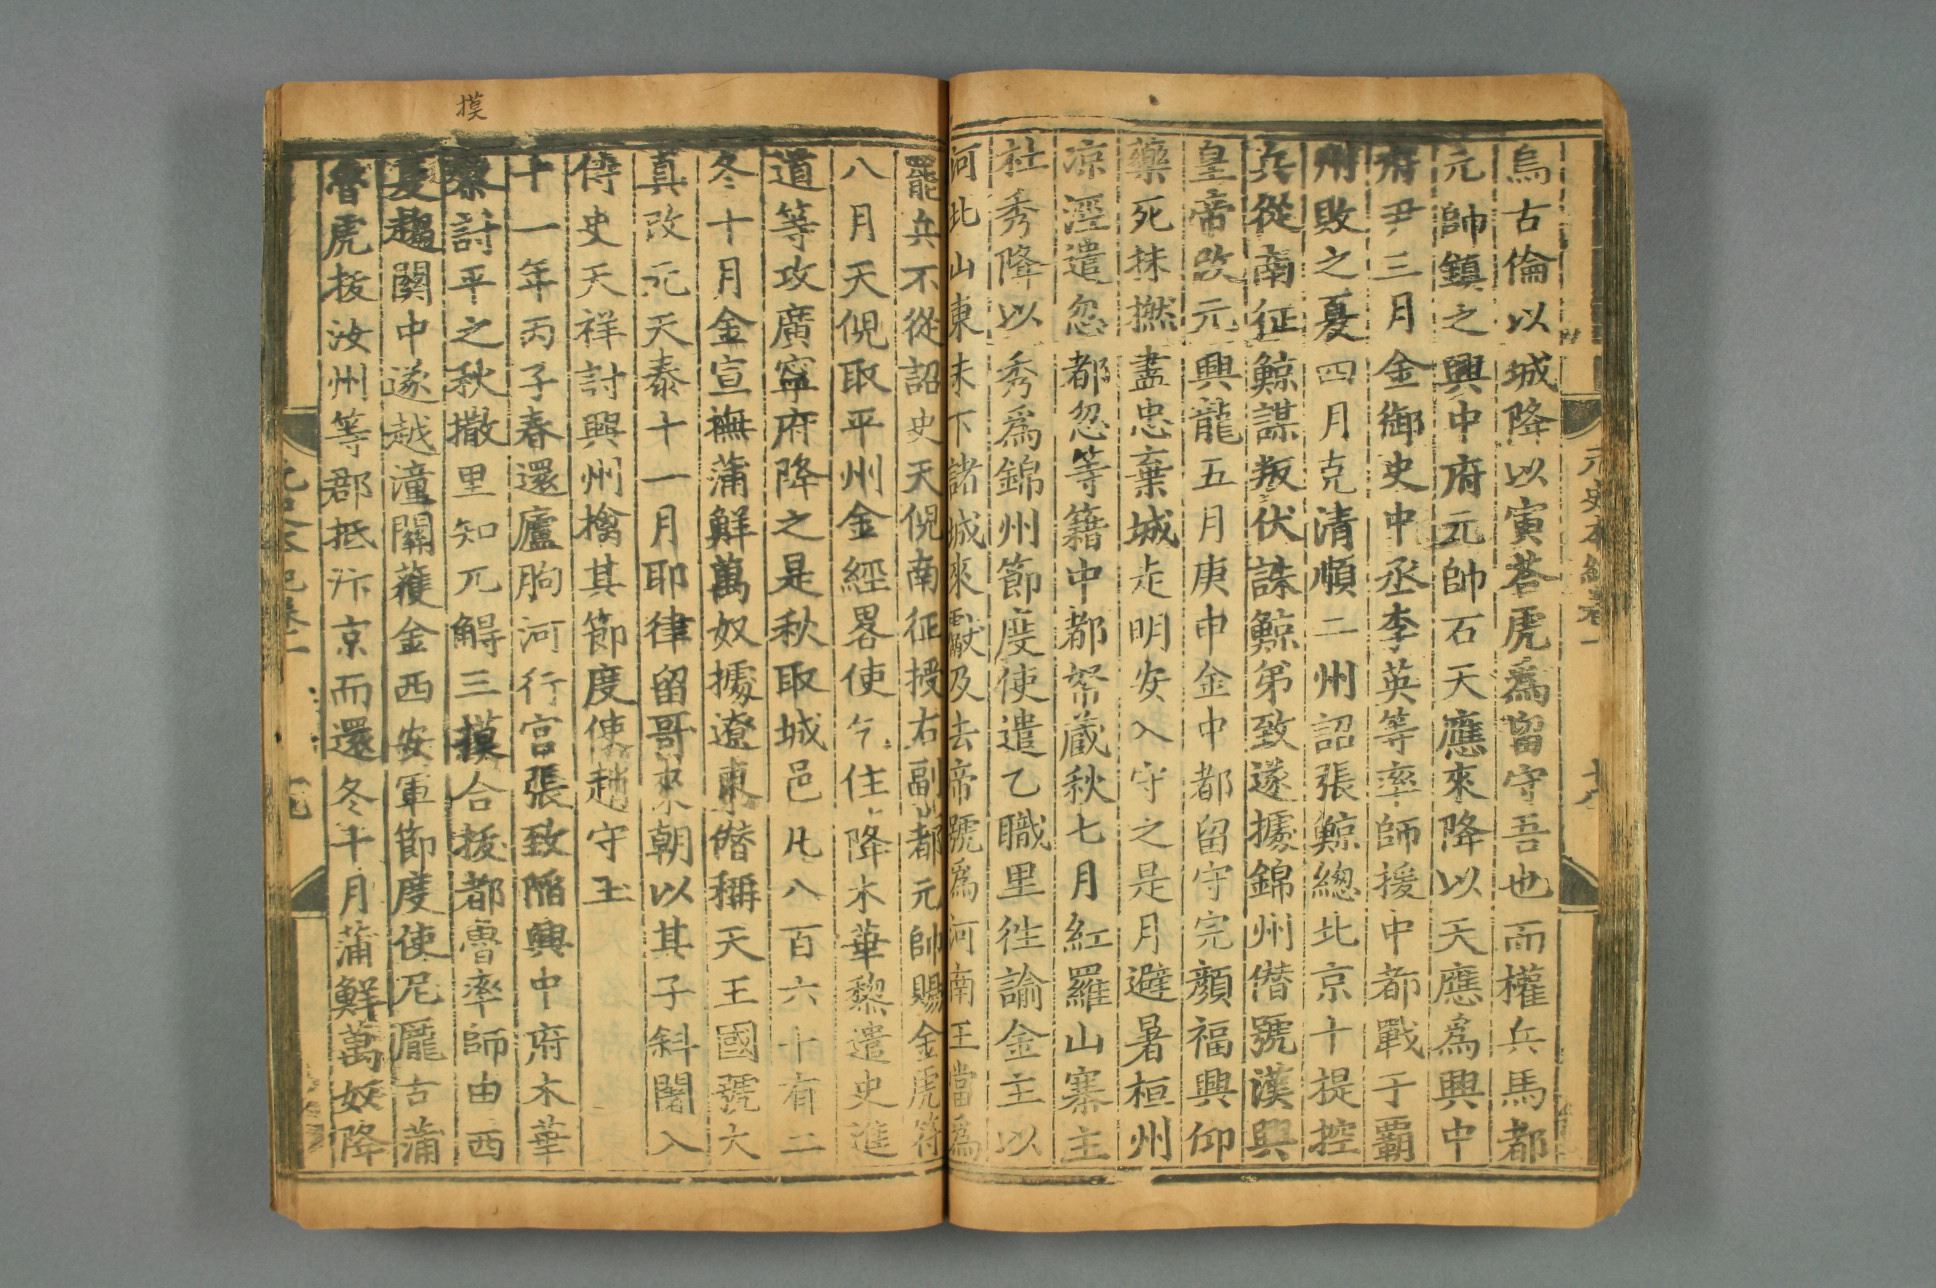 烏古倫以城降以寅荅虎爲留守吾也而權兵馬都
元帥鎮之興中府元帥石天應來降以天應爲興中
府尹三月金御史中丞李英等率師援中都戰于霸
州敗之夏四月克清順二州詔張鯨緫北京十提控
兵從南征鯨謀叛伏誅鯨弟致遂據錦州僣號漢興
皇帝改元興龍五月庚申金中都留守完顏福興仰
藥死抹撚盡忠棄城走明安入守之是月避暑桓州
凉涇遣忽都忽等籍中都帑蔵秋七月紅羅山寨主
杜秀降以秀爲錦州節度使遣乙職里徃諭金主以
河北山東未下諸城來獻及去帝號爲河南王當爲
罷兵不從詔史天倪南征授右副都元帥賜金虎符
八月天倪取平州金經畧使乞住降木華黎遣史進
道等攻廣寧府降之是秋取城邑凡八百六十有二
冬十月金宣撫蒲鮮萬奴據遼東僣稱天王國號大
真改元天泰十一月耶律留哥來朝以其子斜闍入
侍史天祥討興州擒其節度使趙守玉
十一年丙子春還廬朐河行宫張致陷興中府木華
黎討平之秋撒里知兀䚟三摸合拔都魯率師由西
夏趨關中遂越潼關獲金西安軍節度使尼厖古蒲
魯虎拔汝州等郡抵汴京而還冬十月蒲鮮萬奴降
元史本紀卷一
十八
摸